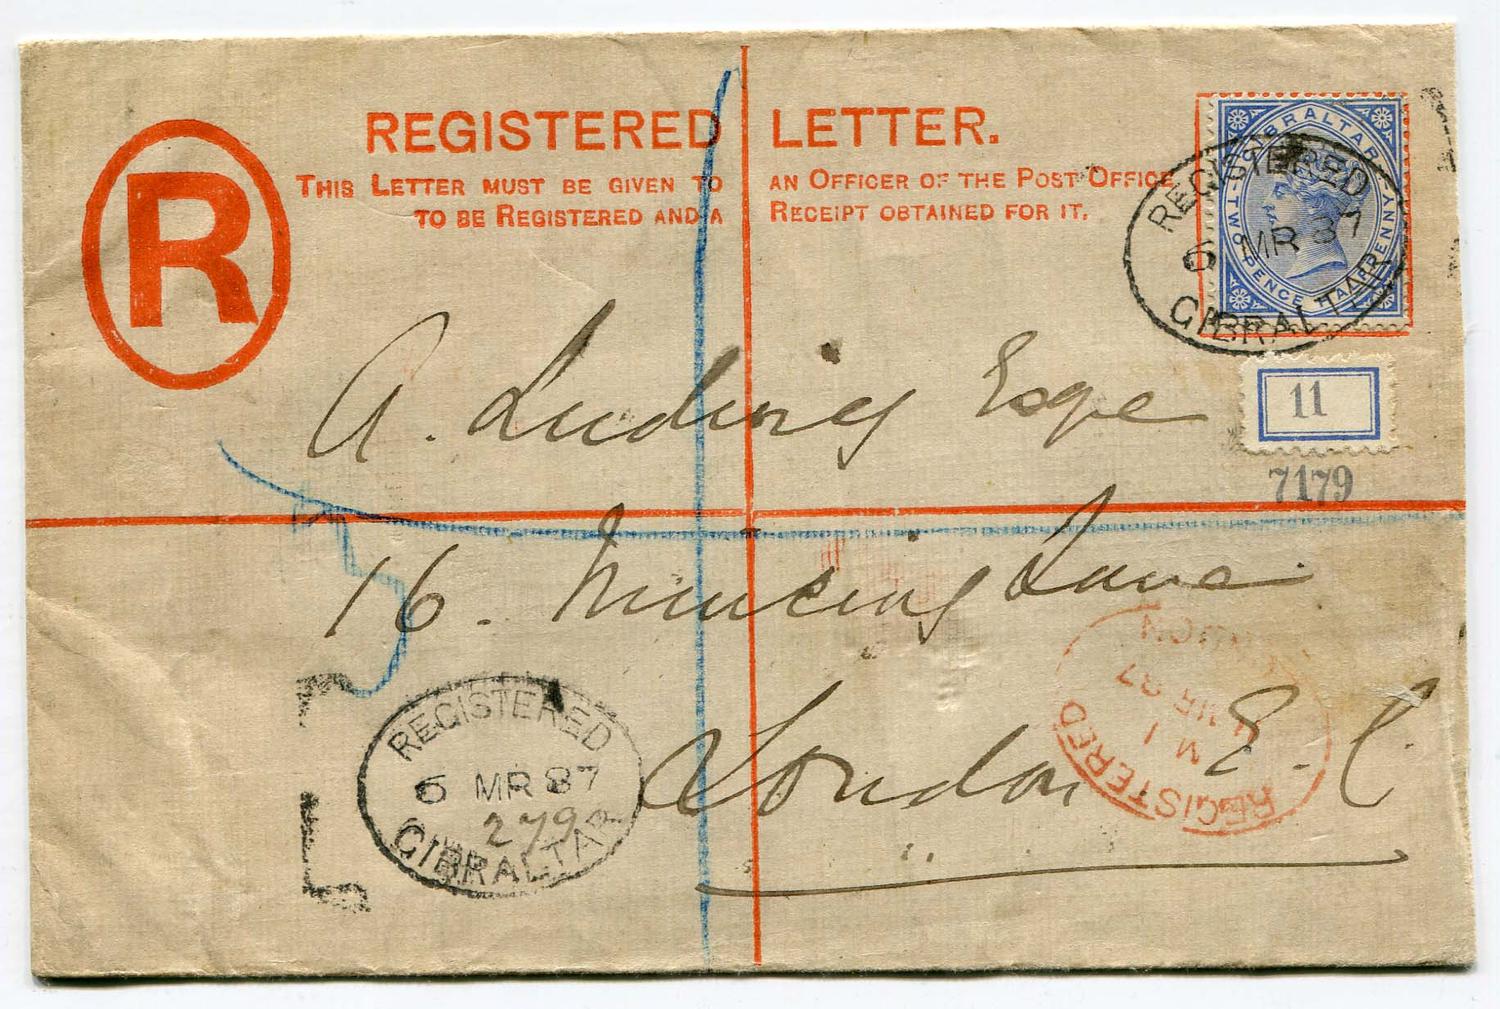 REGISTERED LETTER.
THIS LETTER MUST BE GIVEN TO AN OFFICER OF THE POST OFFICE
TO BE REGISTERED AND A RECEIPT OBTAINED FOR IT.
R
GIBRALTAR
TWO PENCE HALFPENNY
REGISTERED
6 MR 87
GIBRALTAR
11
7179
A. Luding Esqre
16. Mincing Lane
London E.C.
REGISTERED
6 MR 87
279
GIBRALTAR
REGISTERED
MR 87